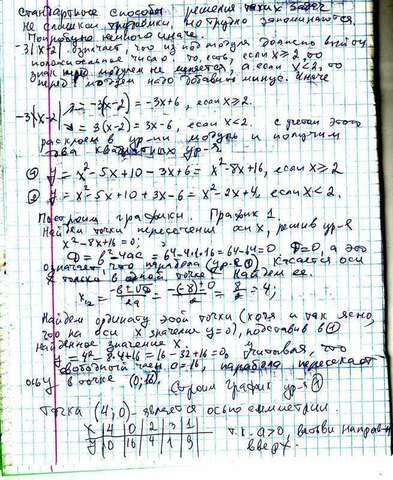 Стандартные способы решения таких задач
не слишком но трудно запоминаются.
Попробую немного иначе.
-3|x-2| означает, что из под модуля должно выйти
положительное число то есть, если x≥2, то
знак модулем не меняется, а если x<2, то
перед модулем надо добавить минус. Иначе
-3|x-2| = -3(x-2) = -3x+6, если x≥2.
= 3(x-2) = 3x-6, если x<2. с учетом этого
раскроем в ур-нии модуль и получим
два квадратных ур-я
① y = x²-5x+10-3x+6 = x²-8x+16, если x≥2
② y = x²-5x+10+3x-6 = x²-2x+4, если x<2.
Построим графики. График 1
Найдем точки пересечения оси x, решив ур-я
x²-8x+16=0;
D = b²-4ac = 64-4·1·16 = 64-64=0. D=0, а это
означает, что парабола (ур-я ①) касается оси
x только в одной точке. Найдем ее.
x₁,₂ = -b±√D/2a = -(-8)±0/2 = 8/2 = 4;
Найдем ординату этой точки (хотя и так ясно,
что на оси x значение y=0), подставив в ①
найденное значение x.
y = 4²-8·4+16 = 16-32+16=0. Учитывая, что
свободный член c=16, парабола пересекает
ось y в точке (0;16). Строим график ур-я ①
Точка (4;0) - является осью симметрии.
x | 4 | 0 | 2 | 3 | 1
y | 0 | 16 | 4 | 1 | 9
т.к. a>0, ветви направл
вверх.